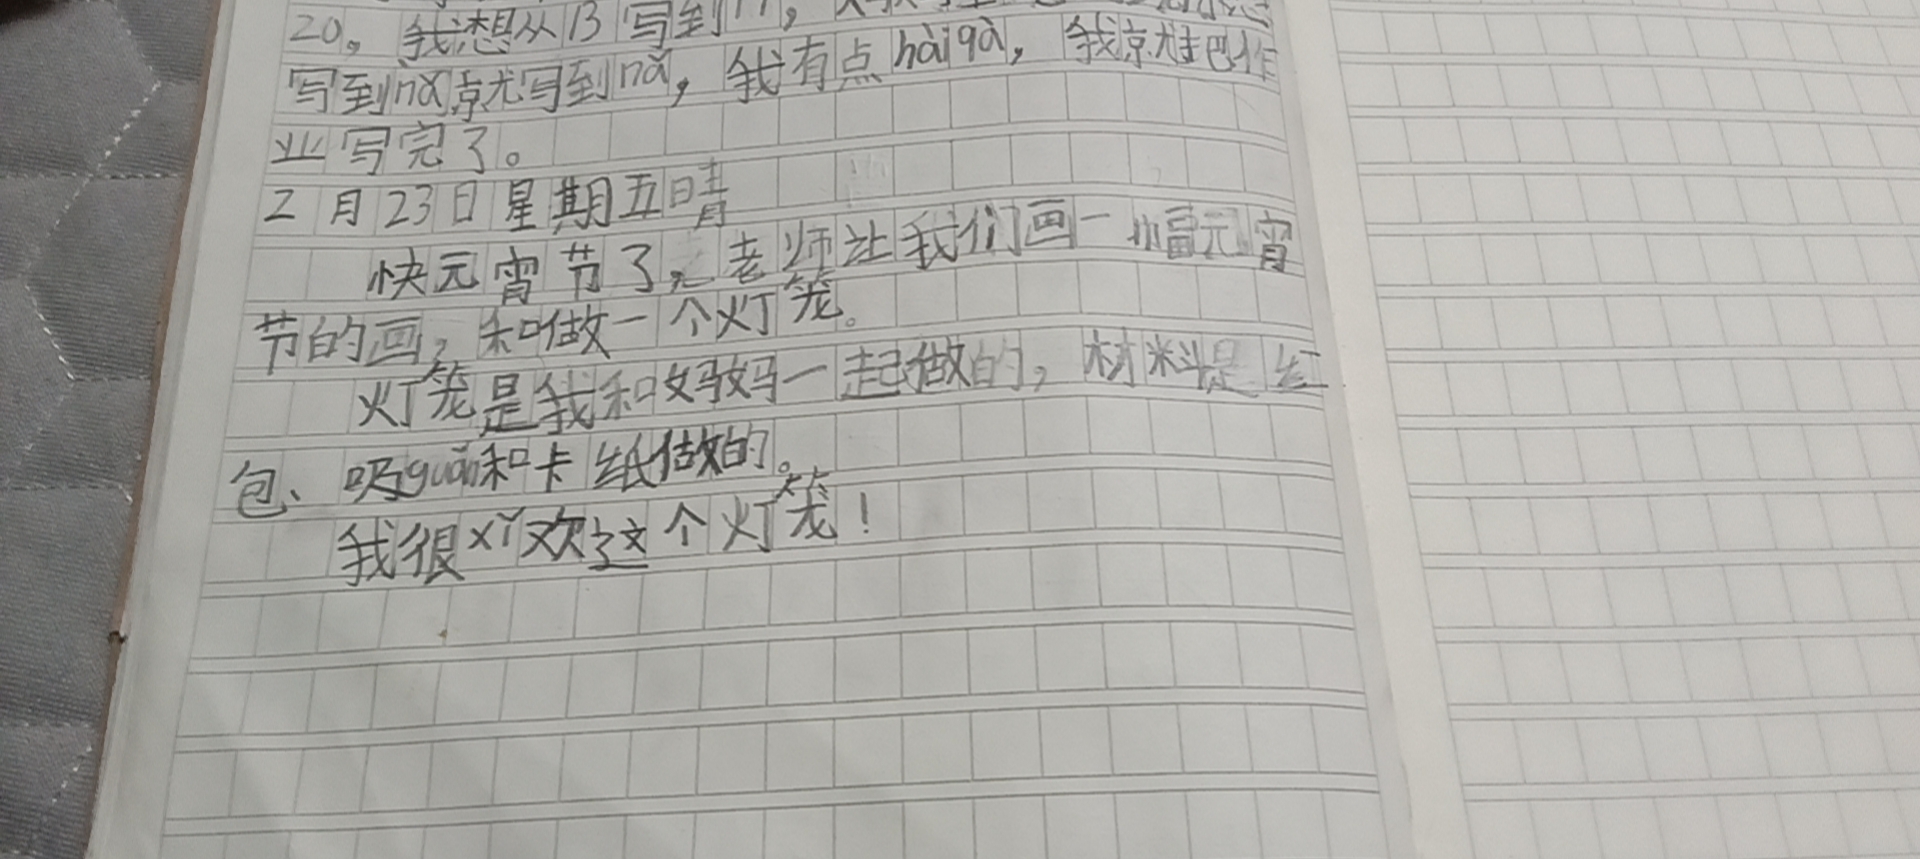 20。我想从13写到
写到nǎ京尤写到nǎ，我有点hàiqà，我京尤把作
业写完了。
2月23日星期五晴
快元宵节了，老师让我们画一幅元宵
节的画，和做一个灯笼。
灯笼是我和妈妈一起做的，材料是红
包、吸guǎn和卡纸做的。
我很xǐ欢这个灯笼！